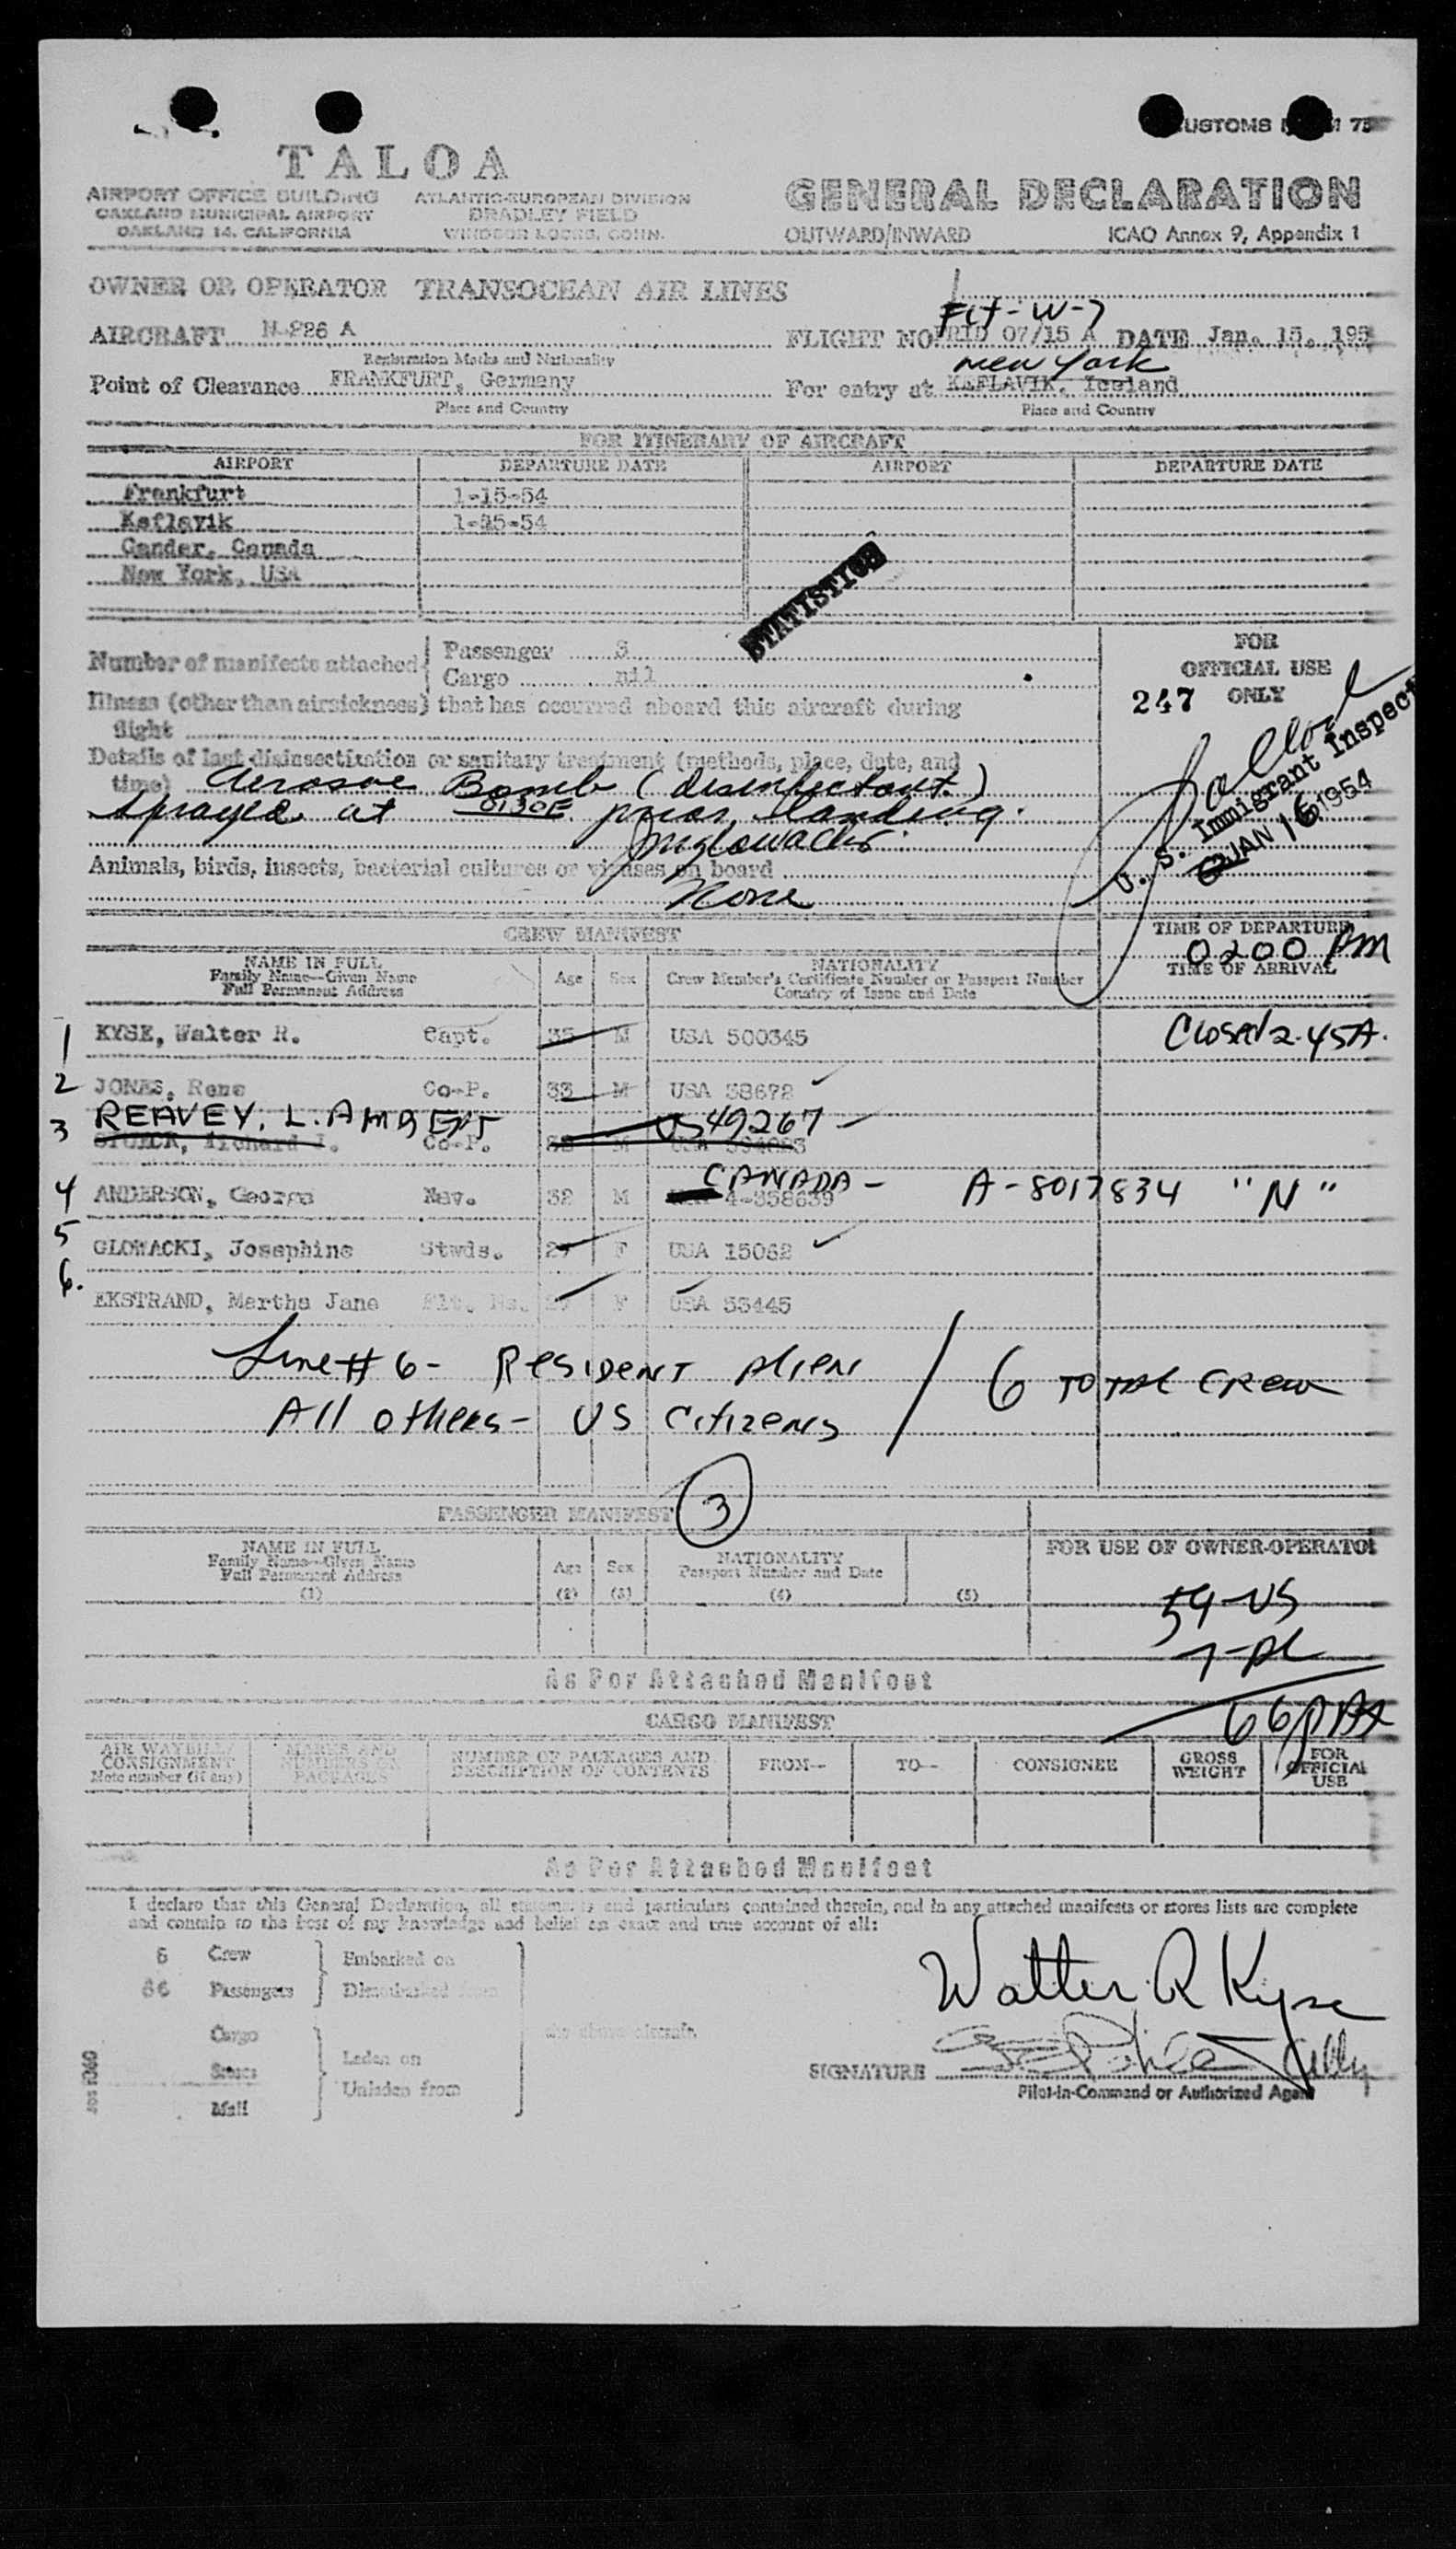 USTOMS
TALOA
AIRPORT OFFICE BUILDING
OAKLAND MUNICIPAL AIRPORT
OAKLAND 14, CALIFORNIA
ATLANTIC-EUROPEAN DIVISION
BRADLEY FIELD
WINDSOR LOCKS, CONN.
GENERAL DECLARATION
OUTWARD/INWARD ICAO Annex 9, Appendix 1
OWNER OR OPERATOR TRANSOCEAN AIR LINES
Flt-W-7
AIRCRAFT N-826 A FLIGHT NO. 07/15 A DATE Jan. 15, 195
Registration Marks and Nationality
New York
Point of Clearance FRANKFURT, Germany For entry at KEFLAVIK, Iceland
Place and Country Place and Country
FOR ITINERARY OF AIRCRAFT
AIRPORT DEPARTURE DATE AIRPORT DEPARTURE DATE
Frankfurt 1-15-54
Keflavik 1-15-54
Gander, Canada
New York, USA
STATISTICS
Number of manifests attached
Passenger 3
Cargo nil
FOR
OFFICIAL USE
247 ONLY
Illness (other than airsickness) that has occurred aboard this aircraft during
flight
Details of last disinsectization or sanitary treatment (methods, place, date, and
time) Aerosol Bomb (disinfectant)
sprayed at 0130E prior landing.
JMGlowacki
U. S. Immigrant Inspect
JAN 16 1954
Animals, birds, insects, bacterial cultures or viruses on board
None
CREW MANIFEST
TIME OF DEPARTURE
0200 AM
TIME OF ARRIVAL
NAME IN FULL
Family Name—Given Name
Full Permanent Address
Age Sex
NATIONALITY
Crew Member's Certificate Number or Passport Number
Country of Issue and Date
1 KYSE, Walter R. Capt. 35 M USA 500345
Closed 2.45A.
2 JONAS, Rene Co-P. 33 M USA 38672
3 REAVEY, LAMBERT US 49267
Richard Co-P. M
CANADA-
4 ANDERSON, George Nav. 32 M 4-358639 A-8017834 "N"
5 GLOWACKI, Josephine Stwds. 27 F USA 15062
6. EKSTRAND, Martha Jane F USA 33445
Line # 6 - Resident Alien / 6 TOTAL CREW
All others - US Citizens
3
PASSENGER MANIFEST
NAME IN FULL
Family Name—Given Name
Full Permanent Address
(1)
Age
(2)
Sex
(3)
NATIONALITY
Passport Number and Date
(4)
(5)
FOR USE OF OWNER-OPERATOR
59-US
7-AL
66 PAX
As Per Attached Manifest
CARGO MANIFEST
AIR WAYBILL/
CONSIGNMENT
Note number (if any)
MARKS AND
NUMBERS ON
PACKAGES
NUMBER OF PACKAGES AND
DESCRIPTION OF CONTENTS
FROM— TO— CONSIGNEE
GROSS
WEIGHT
FOR
OFFICIAL
USE
As Per Attached Manifest
I declare that this General Declaration, all statements and particulars contained therein, and in any attached manifests or stores lists are complete
and contain to the best of my knowledge and belief an exact and true account of all:
6 Crew
66 Passengers
Embarked on
Disembarked from
Cargo
Stores
Mail
Laden on
Unladen from
the above aircraft.
Walter R Kyse
SIGNATURE
Pilot-in-Command or Authorized Agent